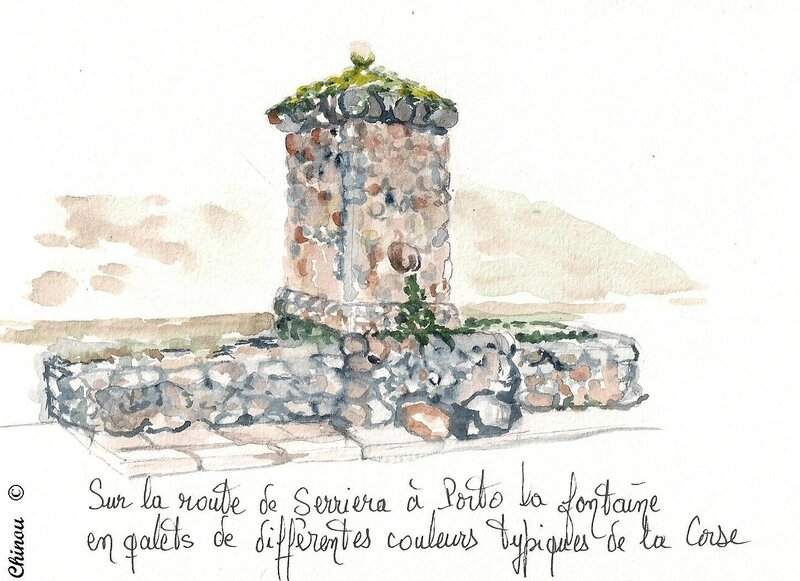 Sur la route de Serriera à Porto la fontaine
en galets de différentes couleurs typiques de la Corse
Chinou ©